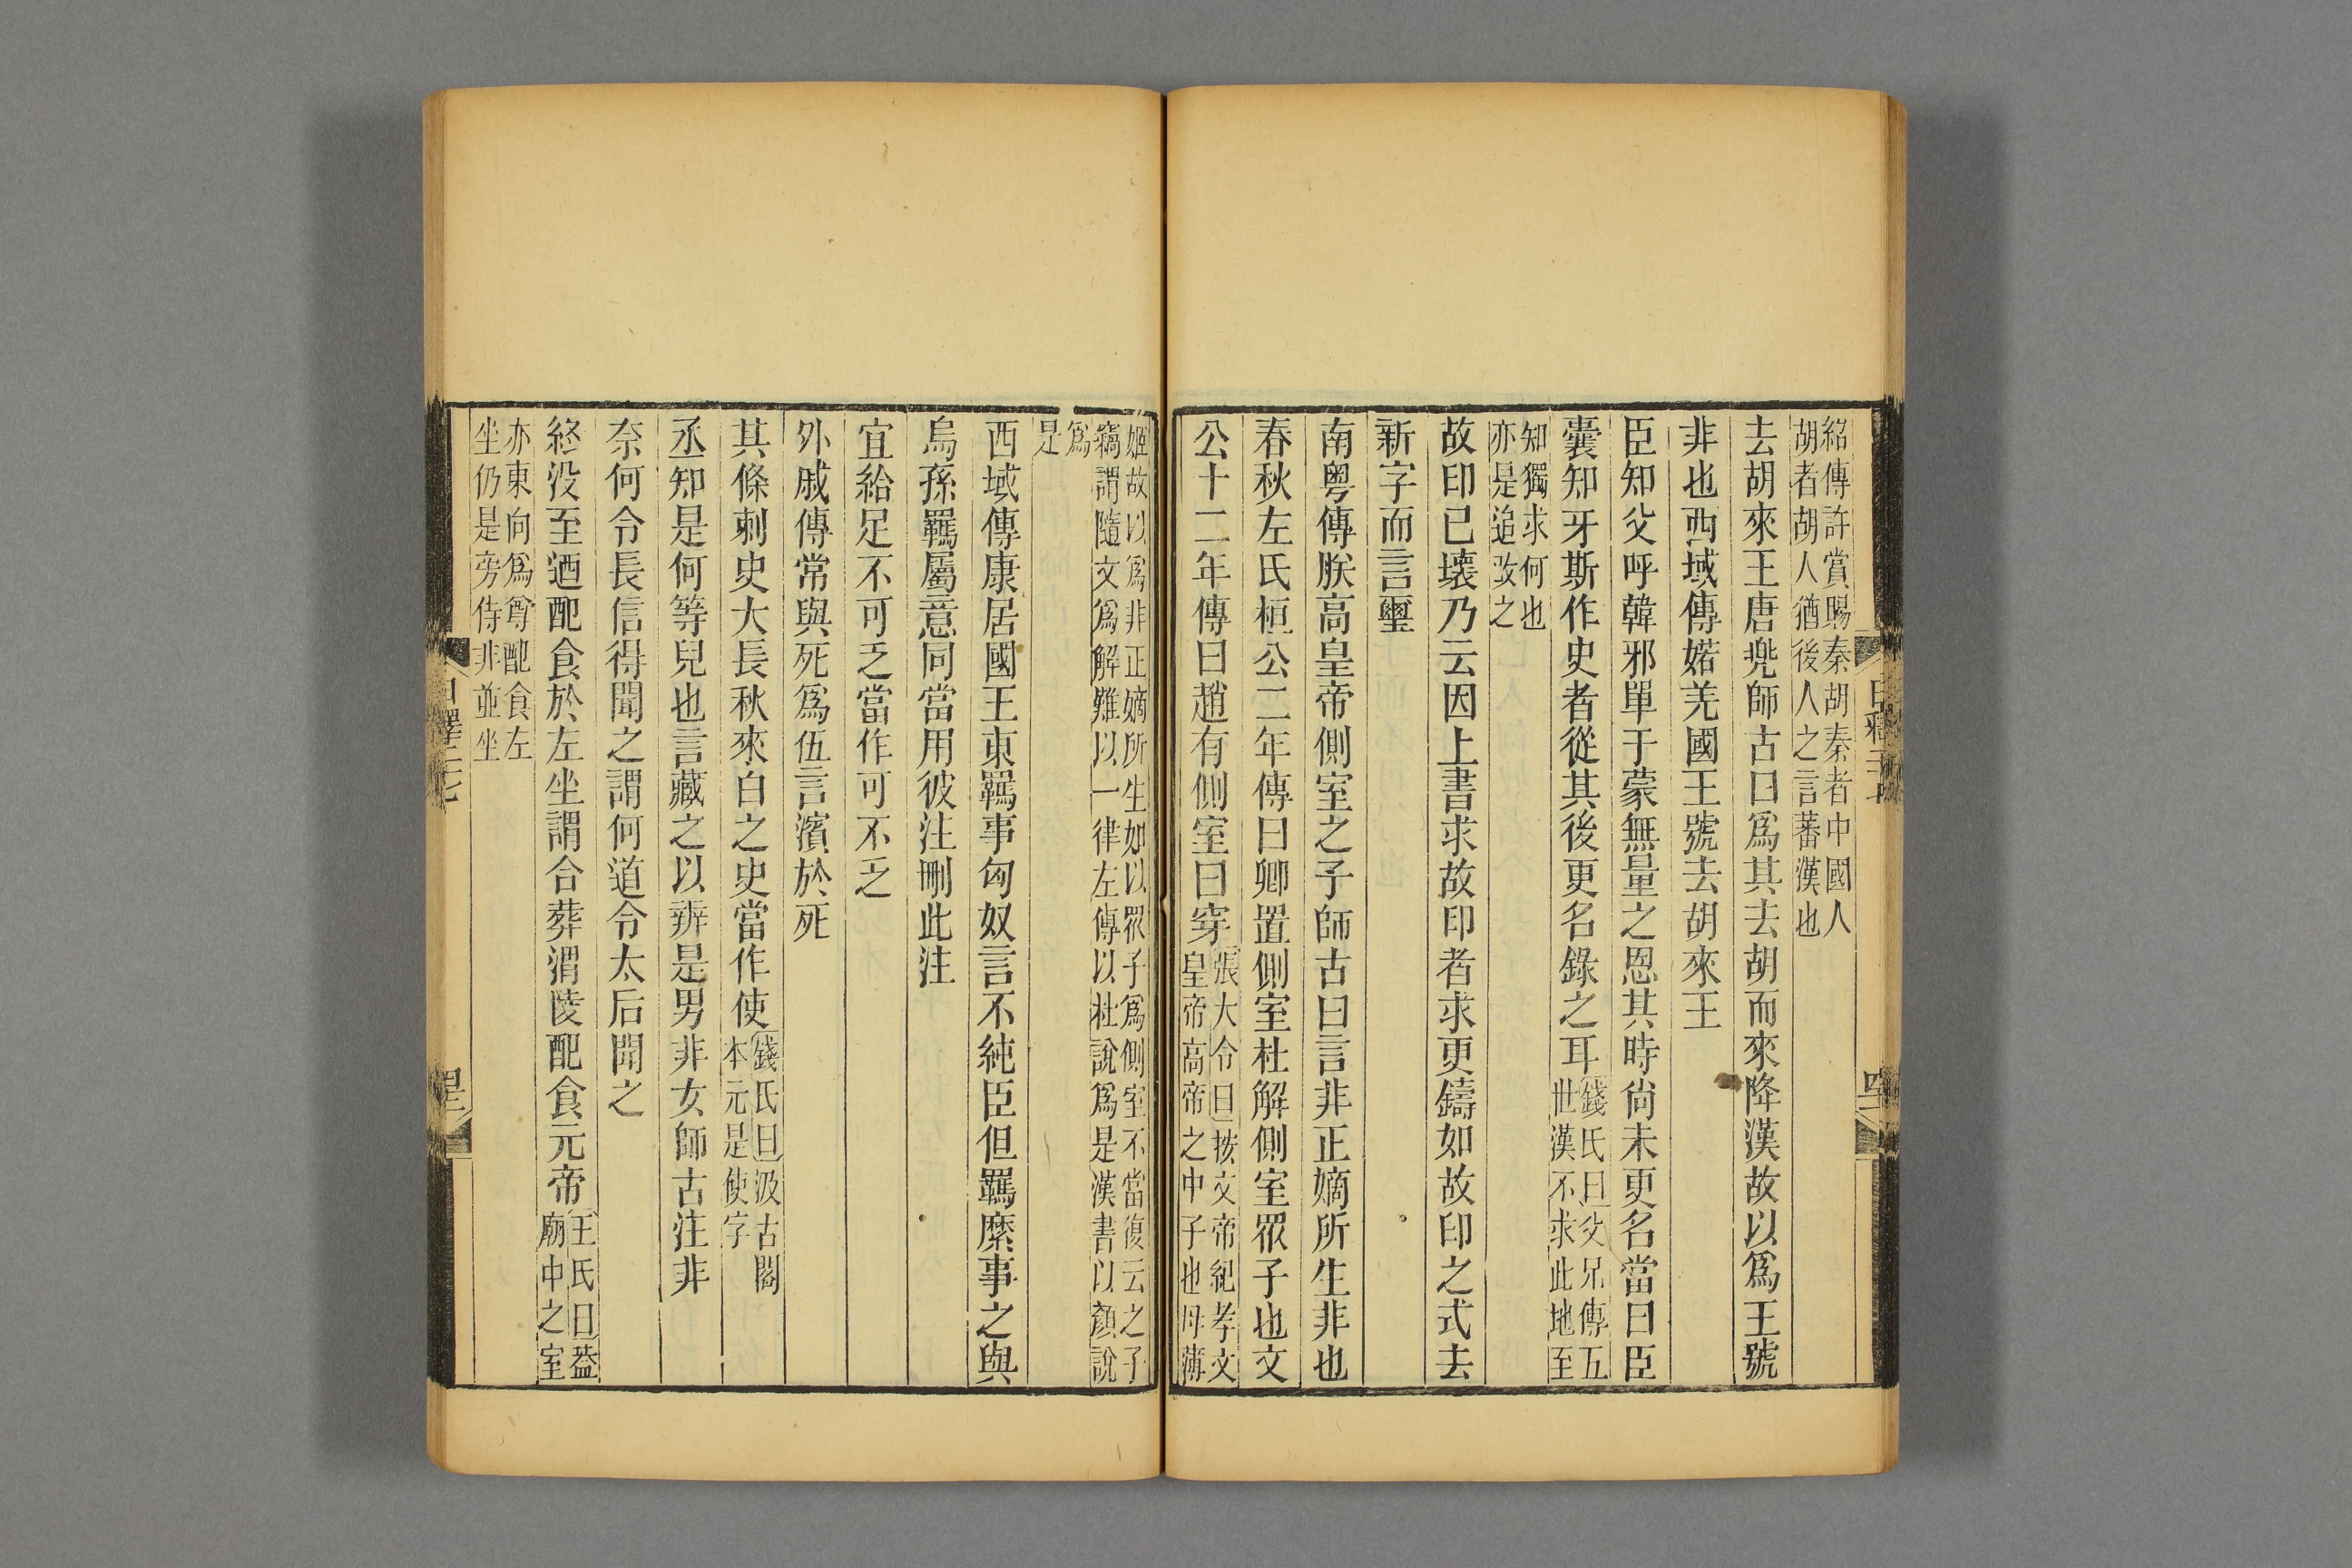 紹傳許賞賜秦胡秦者中國人
胡者胡人猶後人之言蕃漢也
去胡來王唐兠師古曰爲其去胡而來降漢故以爲王號
非也西域傳婼羌國王號去胡來王
臣知父呼韓邪單于蒙無量之恩其時尙未更名當曰臣
囊知牙斯作史者從其後更名錄之耳
錢氏曰父兄傳五
世漢不求此地至
知獨求何也
亦是追改之
故印已壞乃云因上書求故印者求更鑄如故印之式去
新字而言璽
南粤傳朕高皇帝側室之子師古曰言非正嫡所生非也
春秋左氏桓公二年傳曰卿置側室杜解側室眾子也文
公十二年傳曰趙有側室曰穿
張大令曰按文帝紀孝文
皇帝高帝之中子也母薄
姬故以爲非正嫡所生如以眾子爲側室不當復云之子
竊謂隨文爲解難以一律左傳以杜說爲是漢書以顏說
爲
是
西域傳康居國王東羈事匈奴言不純臣但羈縻事之與
烏孫羈屬意同當用彼注刪此注
宜給足不可乏當作可不乏
外戚傳常與死爲伍言濱於死
其條刺史大長秋來白之史當作使
錢氏曰汲古閣
本元是使字
丞知是何等兒也言藏之以辨是男非女師古注非
奈何令長信得聞之謂何道令太后聞之
終没至迺配食於左坐謂合葬渭陵配食元帝
王氏曰葢
廟中之室
亦東向爲尊配食左
坐仍是旁侍非並坐